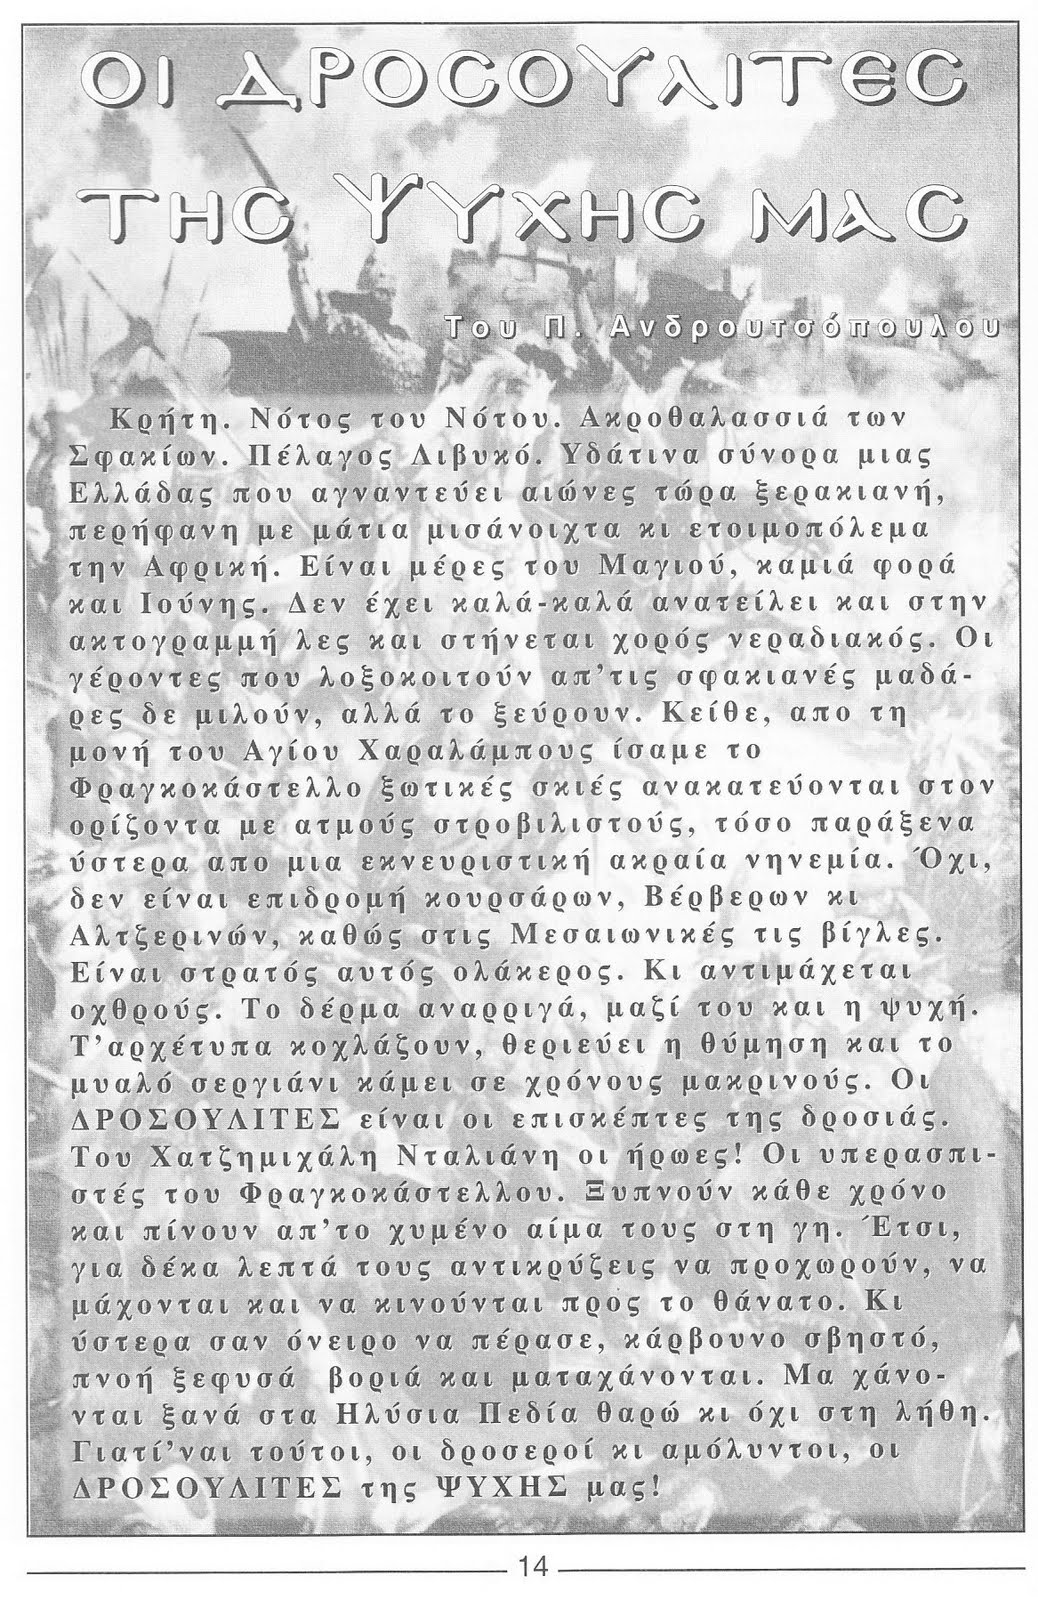 ΟΙ ΔΡΟΣΟΥΛΙΤΕΣ
ΤΗΣ ΨΥΧΗΣ ΜΑΣ
Του Π. Ανδρουτσόπουλου
Κρήτη. Νότος του Νότου. Ακροθαλασσιά των
Σφακίων. Πέλαγος Λιβυκό. Υδάτινα σύνορα μιας
Ελλάδας που αγναντεύει αιώνες τώρα ξερακιανή,
περήφανη με μάτια μισάνοιχτα κι ετοιμοπόλεμα
την Αφρική. Είναι μέρες του Μαγιού, καμιά φορά
και Ιούνης. Δεν έχει καλά-καλά ανατείλει και στην
ακτογραμμή λες και στήνεται χορός νεραδιακός. Οι
γέροντες που λοξοκοιτούν απ'τις σφακιανές μαδά-
ρες δε μιλούν, αλλά το ξεύρουν. Κείθε, απο τη
μονή του Αγίου Χαραλάμπους ίσαμε το
Φραγκοκάστελλο ξωτικές σκιές ανακατεύονται στον
ορίζοντα με ατμούς στροβιλιστούς, τόσο παράξενα
ύστερα απο μια εκνευριστική ακραία νηνεμία. Όχι,
δεν είναι επιδρομή κουρσάρων, Βέρβερων κι
Αλτζερινών, καθώς στις Μεσαιωνικές τις βίγλες.
Είναι στρατός αυτός ολάκερος. Κι αντιμάχεται
οχθρούς. Το δέρμα αναρριγά, μαζί του και η ψυχή.
Τ'αρχέτυπα κοχλάζουν, θεριεύει η θύμηση και το
μυαλό σεργιάνι κάμει σε χρόνους μακρινούς. Οι
ΔΡΟΣΟΥΛΙΤΕΣ είναι οι επισκέπτες της δροσιάς.
Του Χατζημιχάλη Νταλιάνη οι ήρωες! Οι υπερασπι-
στές του Φραγκοκάστελλου. Ξυπνούν κάθε χρόνο
και πίνουν απ'το χυμένο αίμα τους στη γη. Έτσι,
για δέκα λεπτά τους αντικρύζεις να προχωρούν, να
μάχονται και να κινούνται προς το θάνατο. Κι
ύστερα σαν όνειρο να πέρασε, κάρβουνο σβηστό,
πνοή ξεφυσά βοριά και ματαχάνονται. Μα χάνο-
νται ξανά στα Ηλύσια Πεδία θαρώ κι όχι στη λήθη.
Γιατί'ναι τούτοι, οι δροσεροί κι αμόλυντοι, οι
ΔΡΟΣΟΥΛΙΤΕΣ της ΨΥΧΗΣ μας!
14